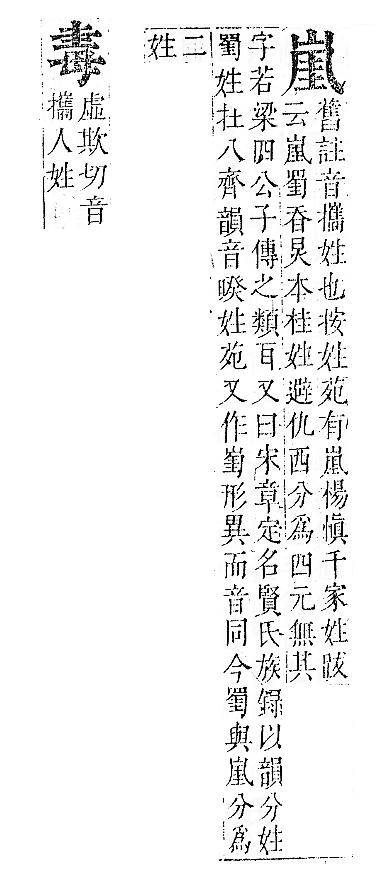 舊註音攜姓也按姓苑有楊慎千家姓跋
云吞炅本桂姓避仇西分為四元無其
字若梁四公子傳之類耳又曰宋章定名賢氏族錄以韻分姓
姓在八齊韻音暌姓苑又作形異而音同今與分為
二
姓
毒
虛欺切音
攜人姓